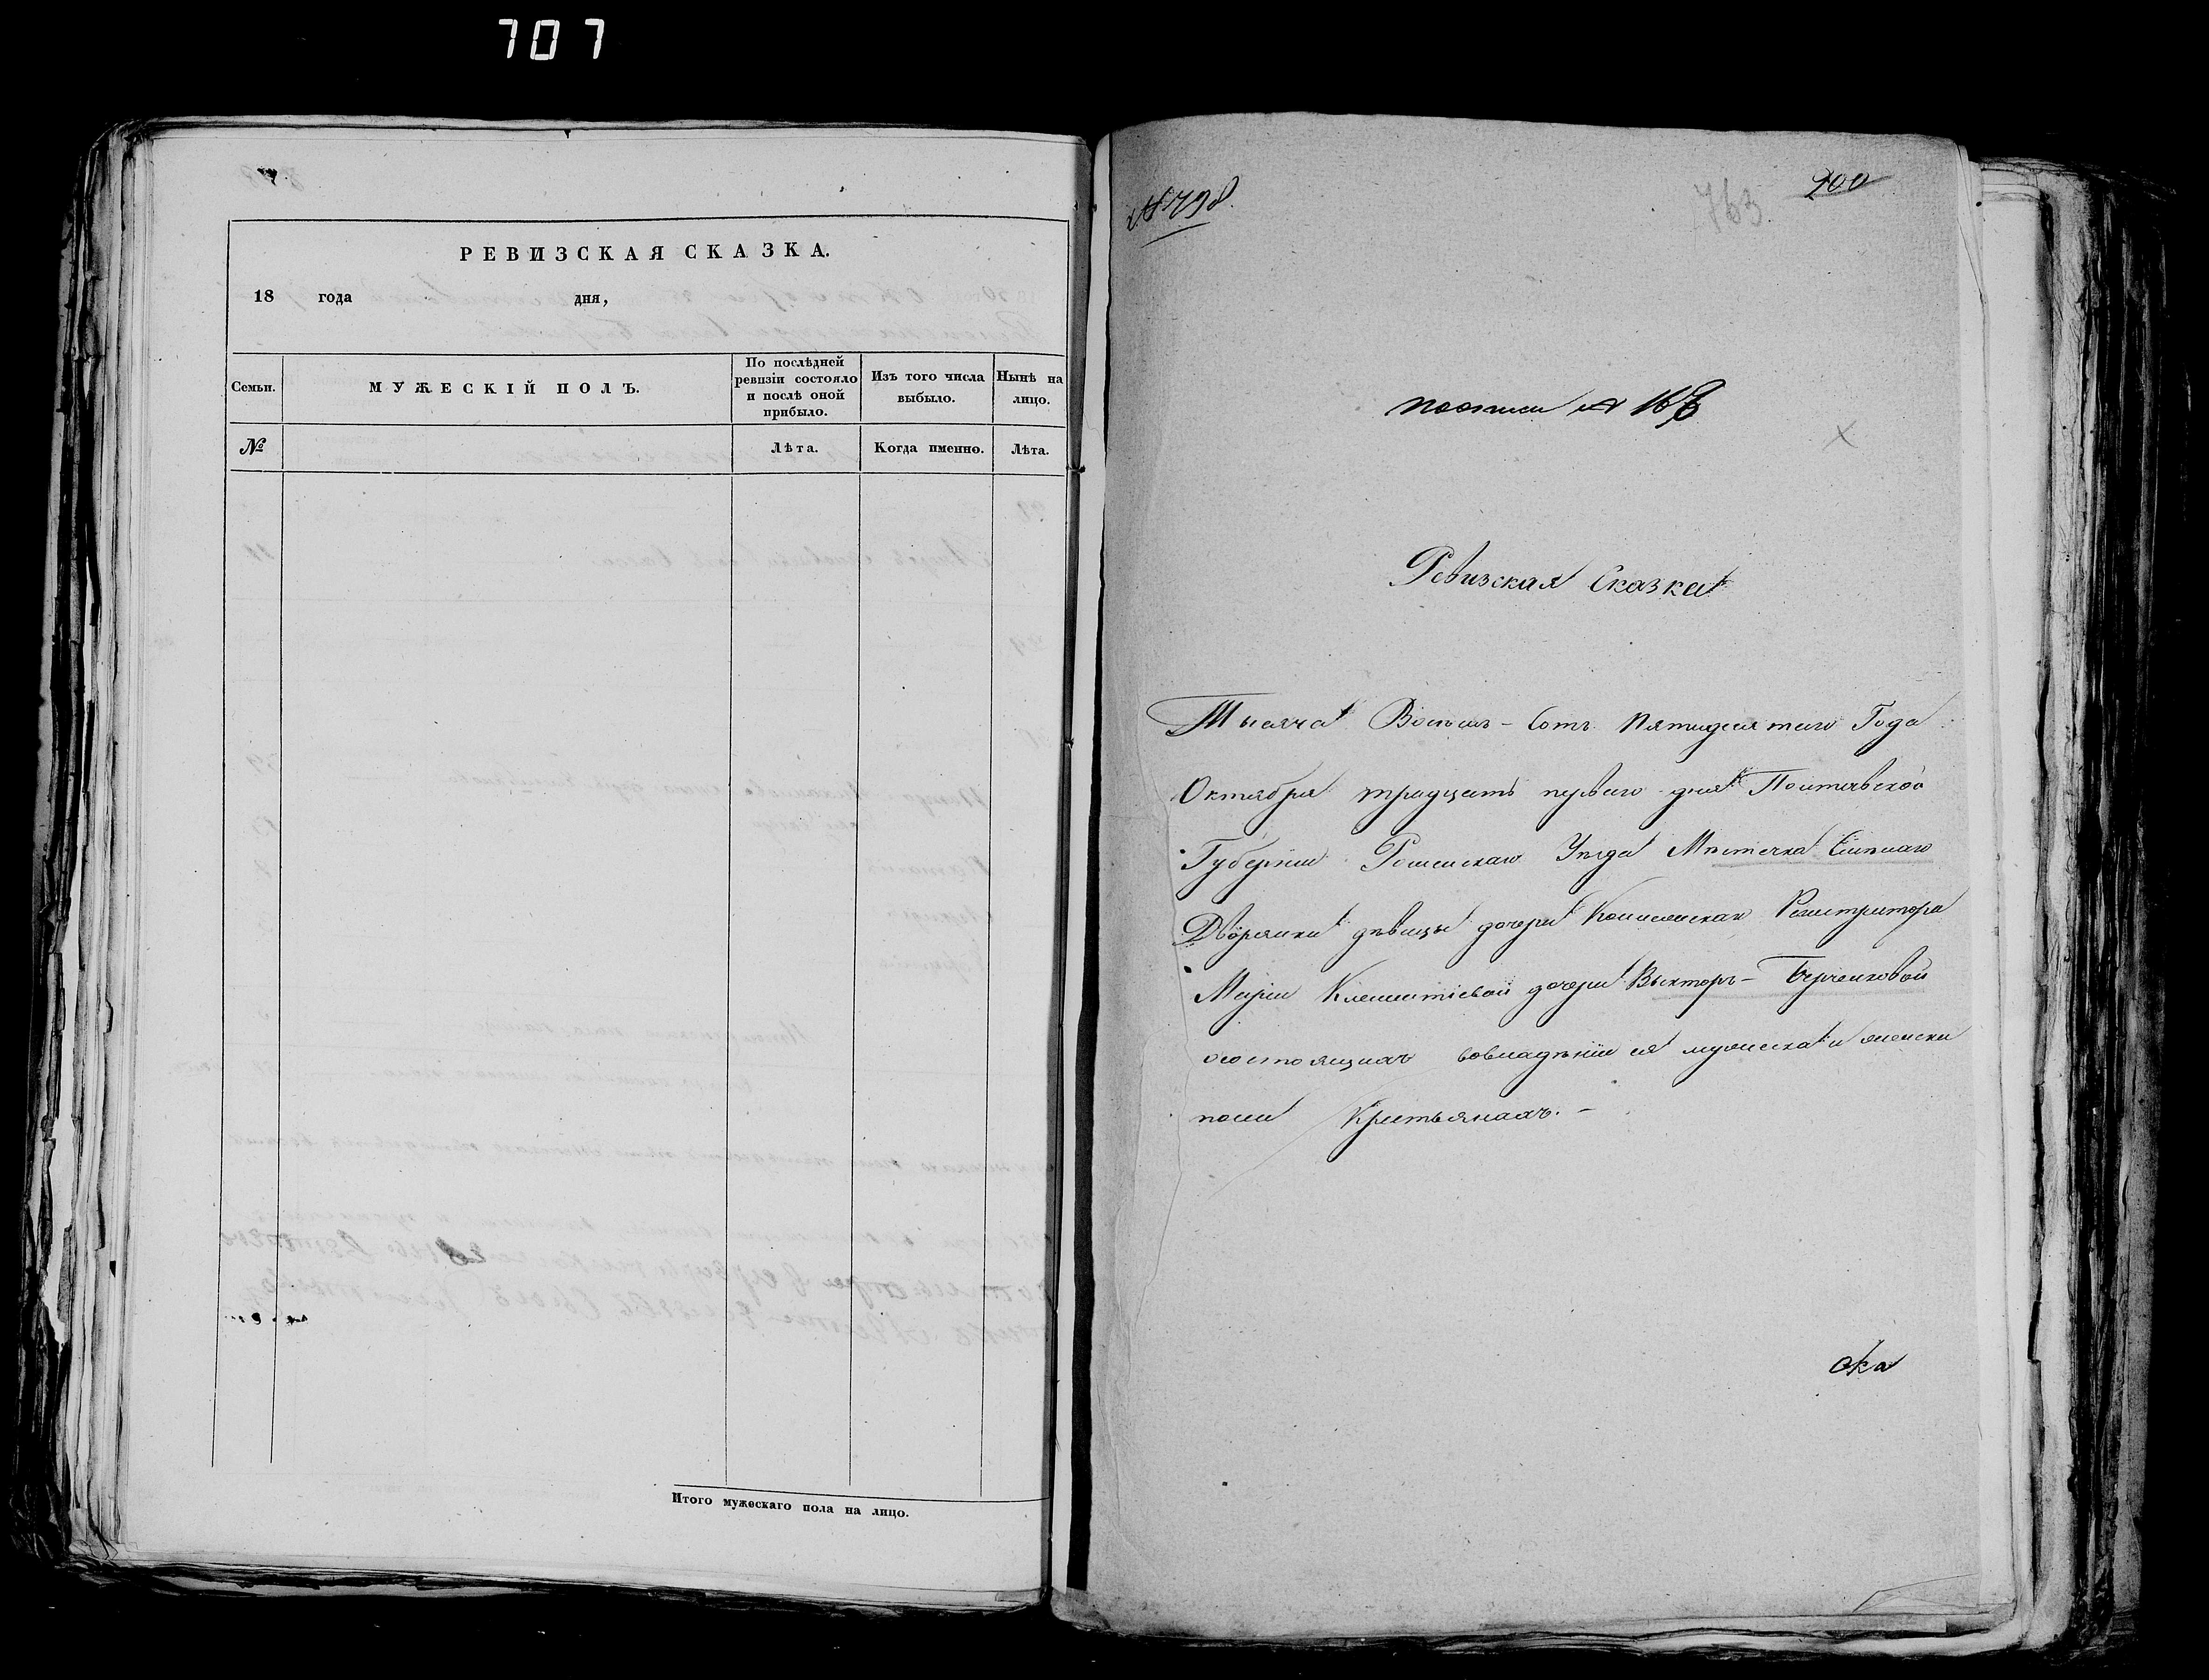 707
РЕВИЗСКАЯ СКАЗКА.
18 года дня,
Семьи.
МУЖЕСКІЙ ПОЛЪ.
По послѣдней ревизіи состояло и послѣ оной прибыло.
Изъ того числа выбыло.
Нынѣ на лицо.
№
Лѣта.
Когда именно.
Лѣта.
Итого мужескаго пола на лицо.
№ 798
763
200
по описи №
Ревизская Сказка
Тысяча Восемь-Сотъ Пятидесятаго Года
Октября тридцать перваго дня Полтавской
Губерніи Роменскаго Уѣзда Мѣстечка
Дворянки дѣвицы дочери Колежскаго Регистратора
Маріи Клементіевой дочери
состоящихъ вовладѣніи ея мужеска и женска
пола Крестьянахъ.-
ска